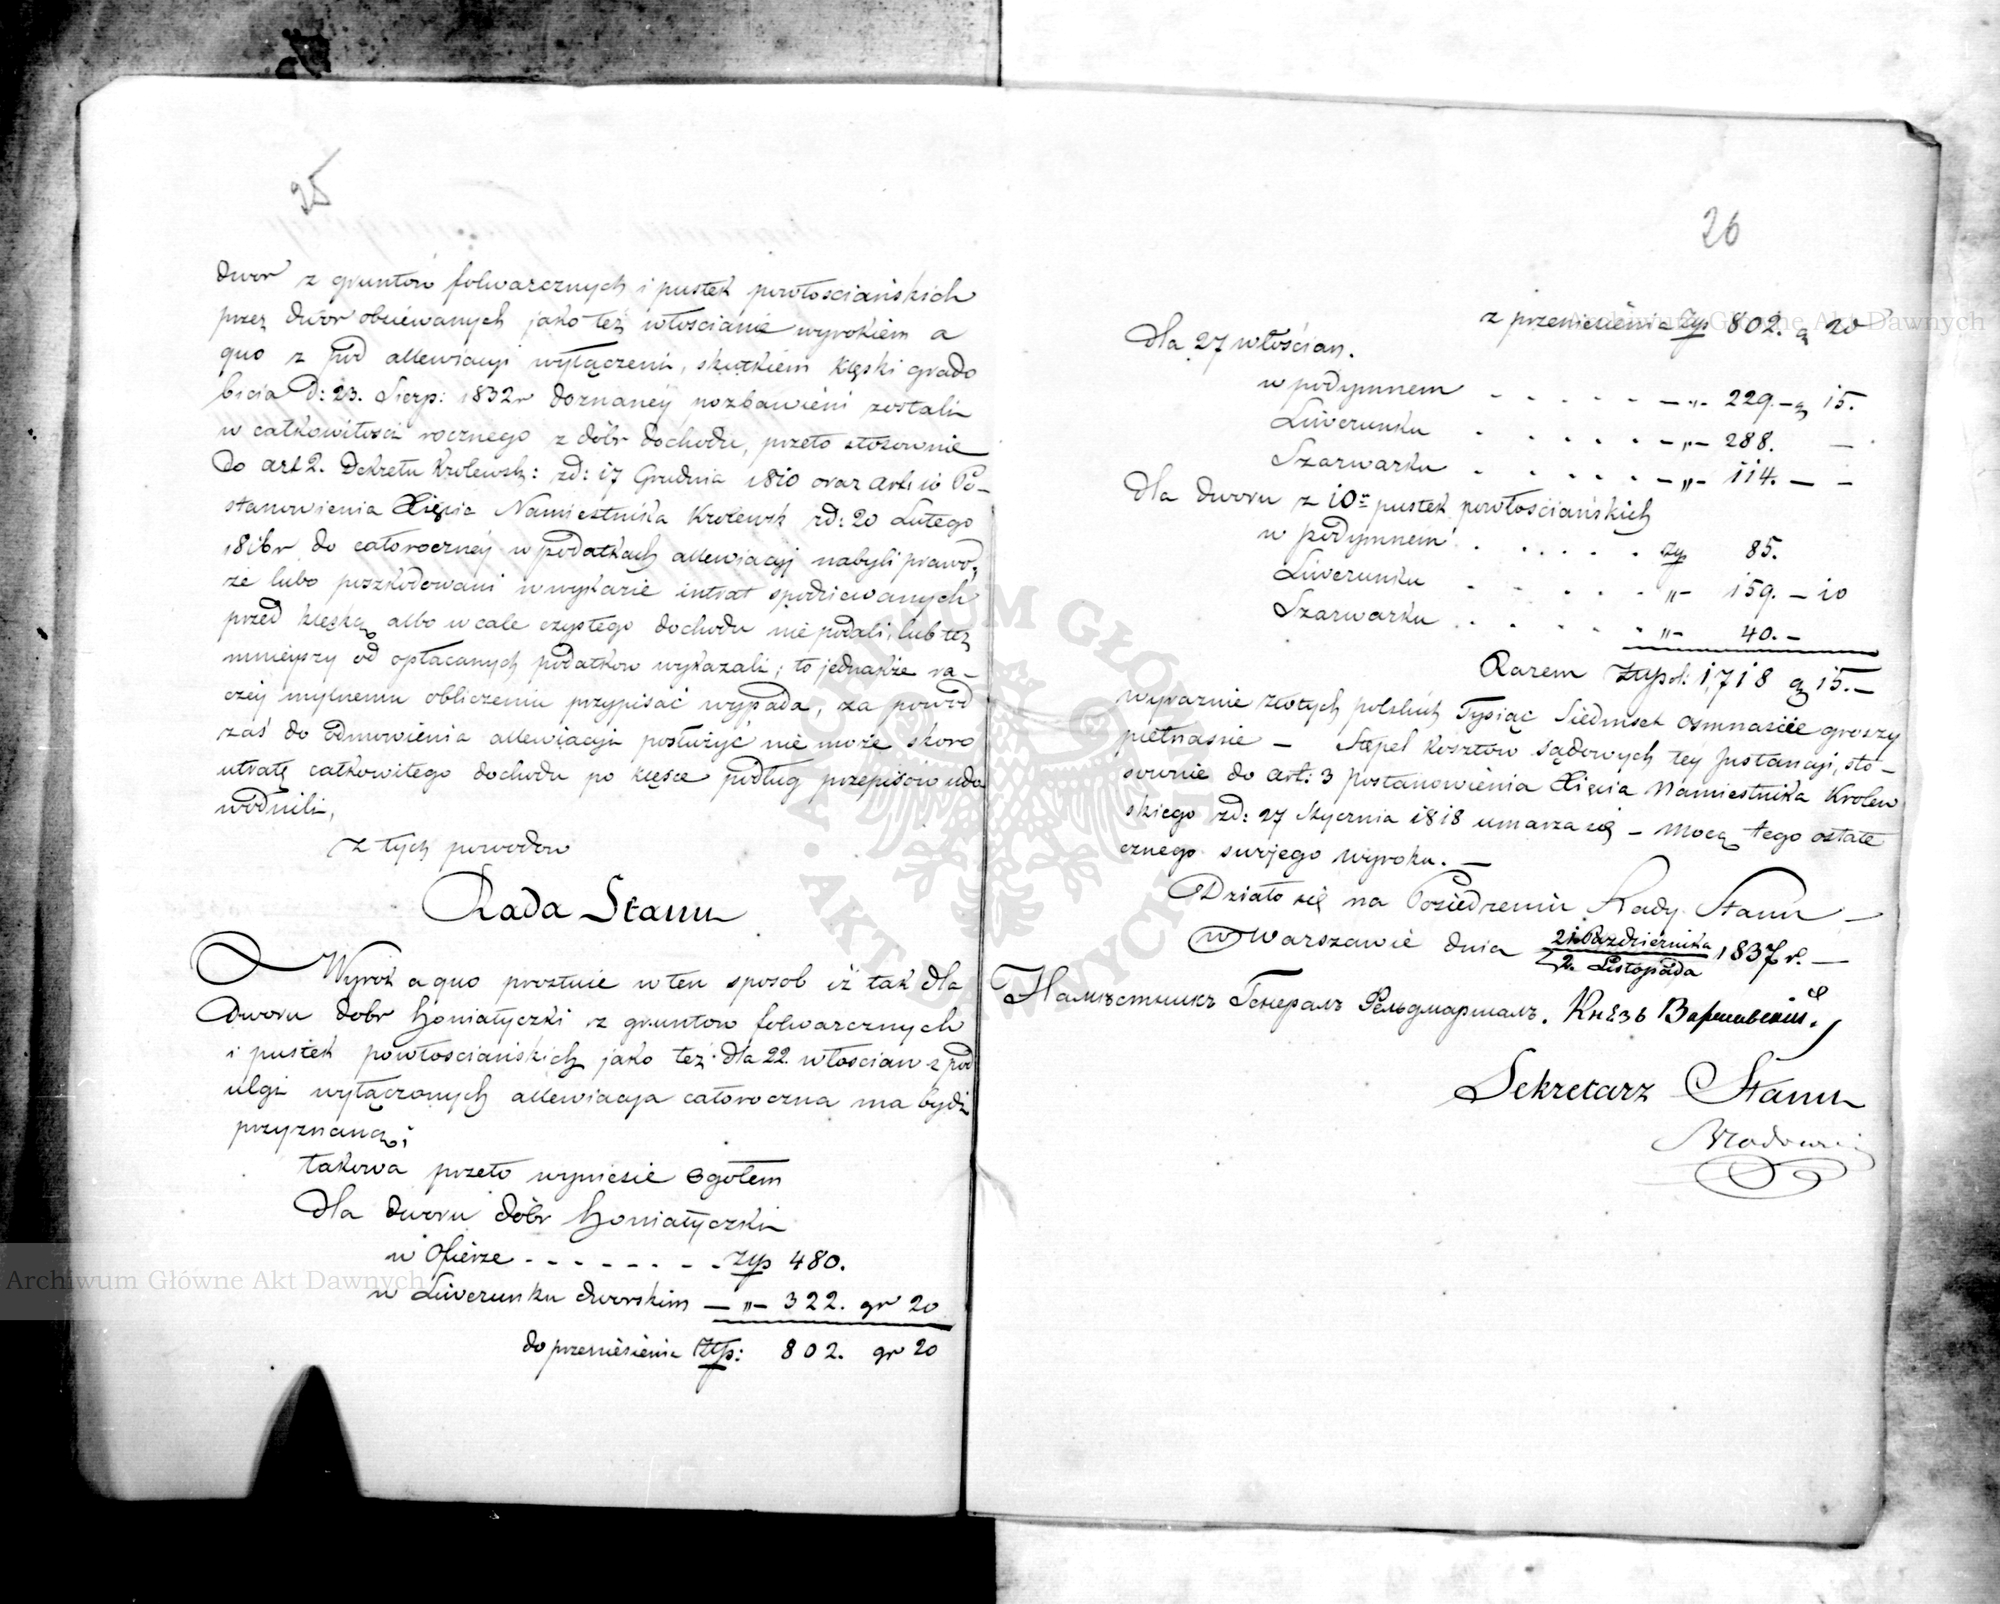 25
dwor z gruntów folwarcznych i pustek powłosciańskich
przez dwor obsiewanych jako też włoscianie wyrokiem a
quo z pod allewiacyi wyłączeni, skutkiem klęski grado
bicia D: 23. Sierp: 1832r doznaney pozbawieni zostali
w całkowitosci rocznego z dóbr dochodu, przeto stosownie
do art 2. Dekretu Krolewsk: zd: 17 Grudnia 1810 oraz art: 10 Po-
stanowienia Xięcia Namiestnika Krolewsk zd: 20 Lutego
1816r do całoroczney w podatkach allewiacyi nabyli prawo,
że lubo poszkodowani w wykazie intrat spodziewanych
przed klęską albo wcale czystego dochodu nie podali, lub też
mnieyszy od opłacanych podatkow wykazali; to jednakże ra-
czey mylnemu obliczeniu przypisać wypada, za powod
zaś do odmowienia allewiacyi posłużyć nie może skoro
utratę całkowitego dochodu po klęsce podług przepisow udo
wodnili,
z tych powodow
Rada Stanu
Wyrok a quo prostuie w ten sposob iż tak dla
Dworu dobr Honiatyczki z gruntow folwarcznych
i pustek powłosciańskich jako też dla 22. włoscian z pod
ulgi wyłączonych allewiacya całoroczna ma bydź
przyznaną;
takowa przeto wyniesie ogołem
Dla dworu dóbr Honiatyczki
w Ofierze - - - - - - - - złp 480.
w Liwerunku dworskim — „ — 322. gr 20
do przeniesienia złp: 802. gr 20
26
z przeniesienia złp 802. g 20
Dla 27 włościan.
w podymnem . . . . . — „ — 229. — g 15.
Liwerunku . . . . . — „ — 288. —
Szarwarku . . . . . — „ — 114. — —
Dla dworu z 10 pustek powłosciańskich
w podymnem . . . . . złp 85.
Liwerunku . . . . . „ — 159. — 10
Szarwarku . . . . . „ — 40. —
Razem złpol: 1,718 g 15. —
wyraznie złotych polskich Tysiąc Siedmset osmnaście groszy
piętnasnie — Stępel kosztów sądowych tey Jnstancyi, sto-
sownie do art: 3 postanowienia Xięcia Namiestnika Krolew
skiego zd: 27 Stycznia 1818 umarza się — Mocą tego ostate
cznego swojego wyroku. —
Działo się na Posiedzeniu Rady Stanu —
w Warszawie dnia 21 Października / 2. Listopada 1837 r. —
Намѣстникъ Генералъ Фельдмаршалъ. Князь Варшавскій.
Sekretarz Stanu
Archiwum Główne Akt Dawnych
Archiwum Główne Akt Dawnych
ARCHIWUM GŁÓWNE AKT DAWNYCH